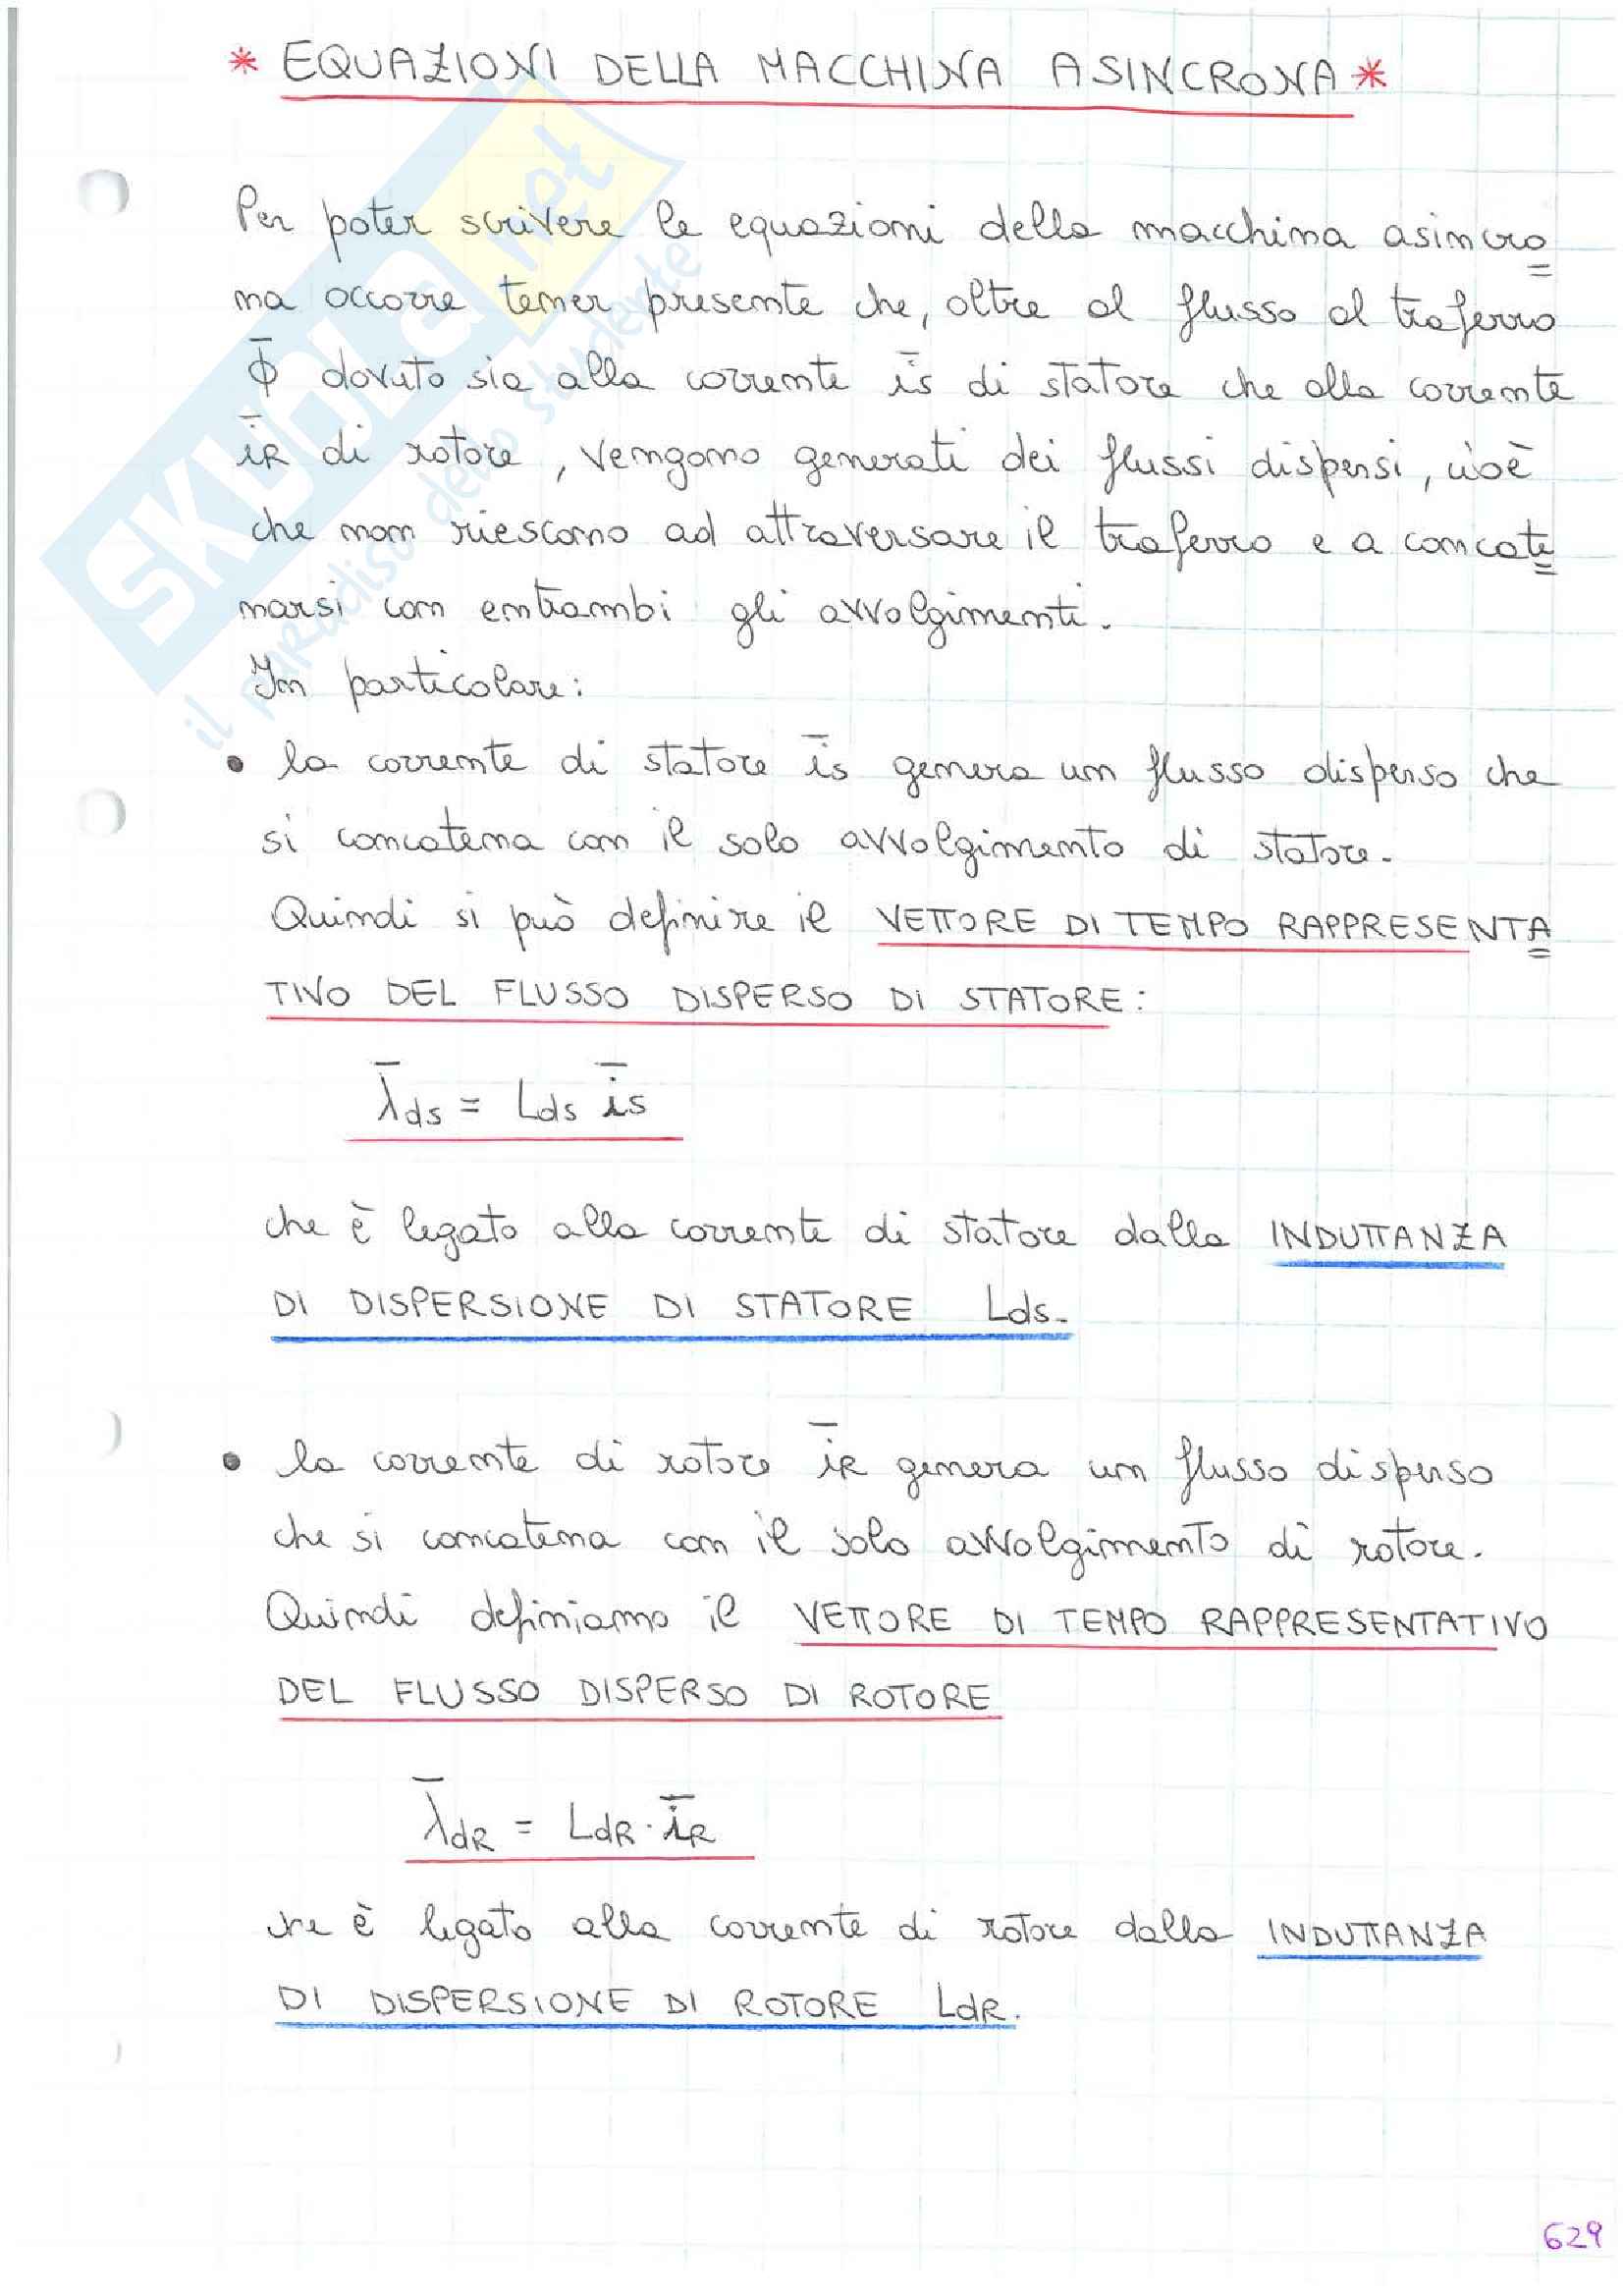 * EQUAZIONI DELLA MACCHINA ASINCRONA *
Per poter scrivere le equazioni della macchina asincro
na occorre tener presente che, oltre al flusso al traferro
Φ̅ dovuto sia alla corrente i̅s di statore che alla corrente
i̅R di rotore, vengono generati dei flussi dispersi, cioè
che non riescono ad attraversare il traferro e a concate
narsi con entrambi gli avvolgimenti.
In particolare:
• la corrente di statore i̅s genera un flusso disperso che
si concatena con il solo avvolgimento di statore.
Quindi si può definire il VETTORE DI TEMPO RAPPRESENTA
TIVO DEL FLUSSO DISPERSO DI STATORE:
λ̅ds = Lds i̅s
che è legato alla corrente di statore dalla INDUTTANZA
DI DISPERSIONE DI STATORE Lds.
• la corrente di rotore i̅R genera un flusso disperso
che si concatena con il solo avvolgimento di rotore.
Quindi definiamo il VETTORE DI TEMPO RAPPRESENTATIVO
DEL FLUSSO DISPERSO DI ROTORE
λ̅dR = LdR · i̅R
che è legato alla corrente di rotore dalla INDUTTANZA
DI DISPERSIONE DI ROTORE LdR.
629
SKUOLA.net
il paradiso dello studente